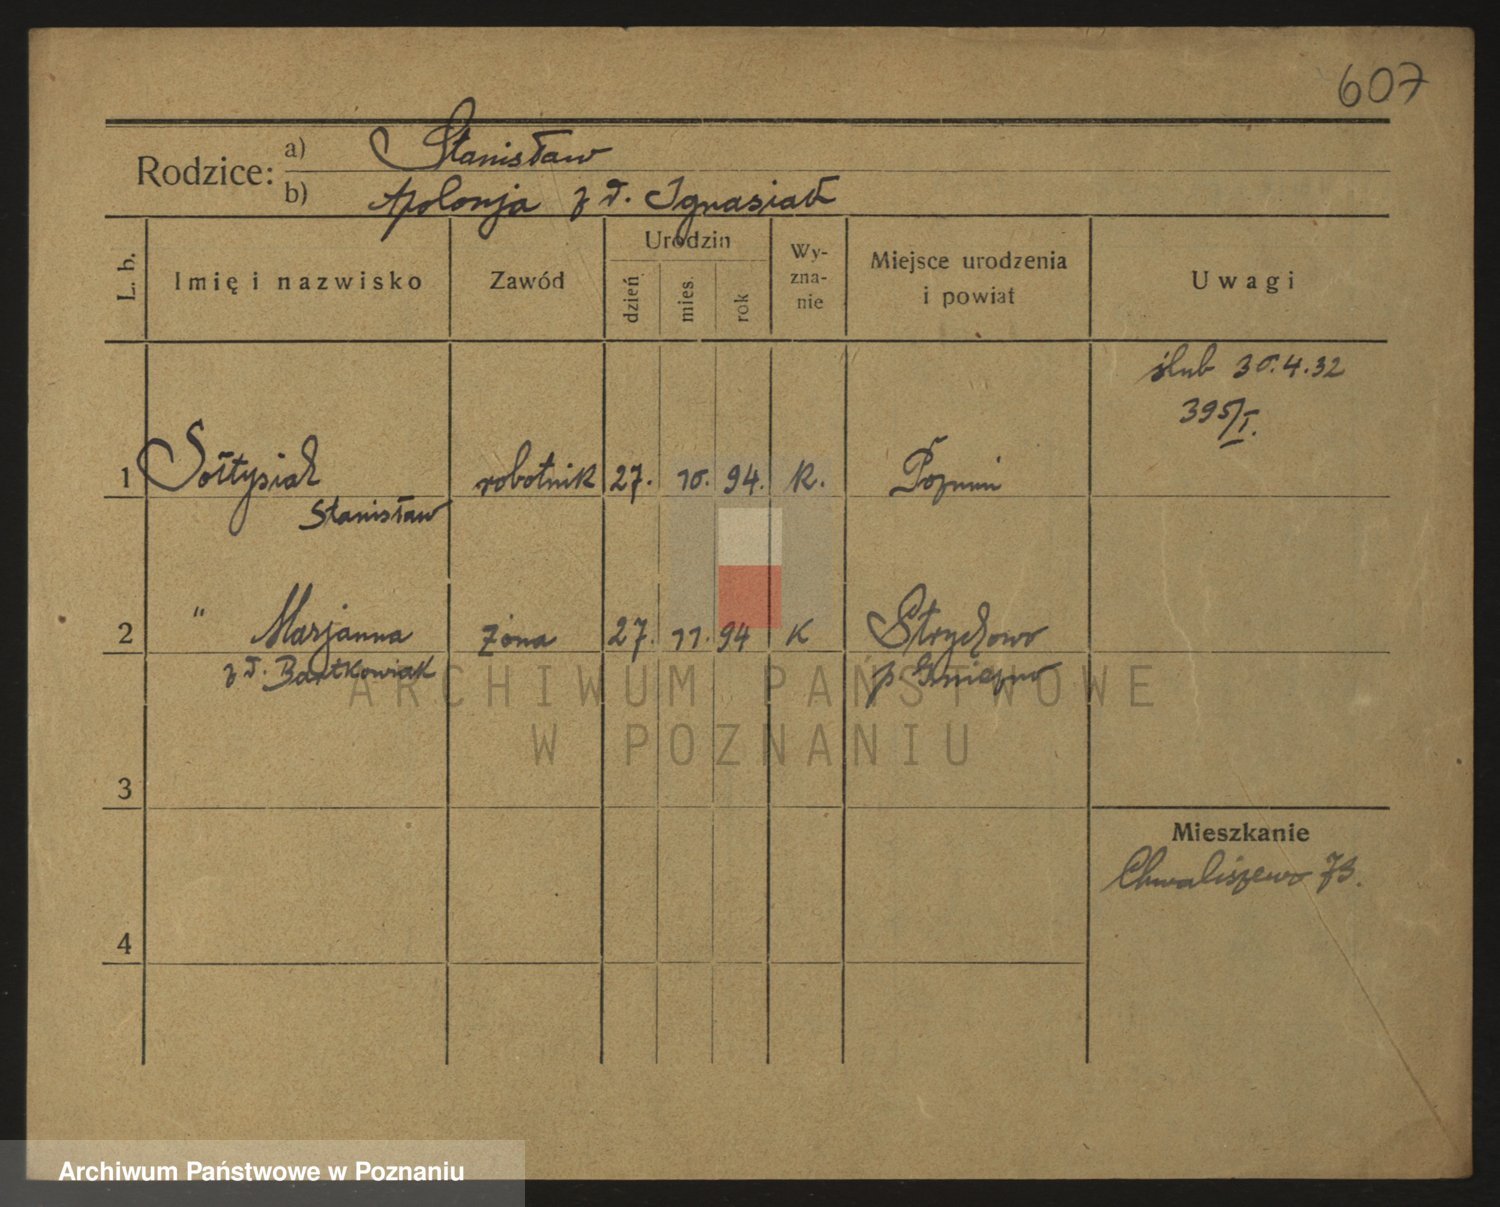 607
Rodzice: a) Stanisław
b) Apolonja z d. Ignasiak
L. b.
Imię i nazwisko
Zawód
Urodzin
dzień
mies.
rok
Wy-
zna-
nie
Miejsce urodzenia
i powiat
Uwagi
ślub 30.4.32
395/I.
1 Sołtysiak robotnik 27. 10. 94. K. Poznań
Stanisław
2 " Marjanna żona 27. 11. 94 K Strychowo
z d. Bartkowiak p. Gniezno
ARCHIWUM PAŃSTWOWE
W POZNANIU
3
Mieszkanie
Chwaliszewo 73.
4
Archiwum Państwowe w Poznaniu